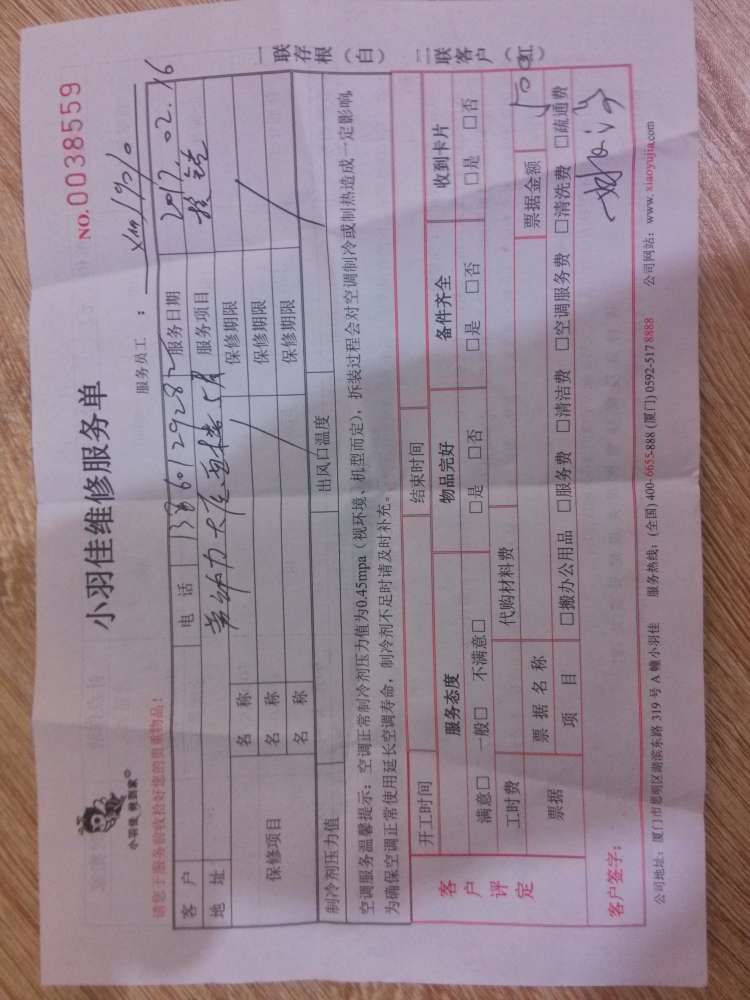 小羽佳 就到家
小羽佳维修服务单
NO.0038559
请您于服务前收拾好您的贵重物品！
服务员工：
客户 电话 服务日期 2017.02.16
地址 服务项目
保修项目 名称 保修期限
名称 保修期限
名称 保修期限
制冷剂压力值 出风口温度
空调服务温馨提示：空调正常制冷剂压力值为0.45mpa（视环境、机型而定），拆装过程会对空调制冷或制热造成一定影响，
为确保空调正常使用延长空调寿命，制冷剂不足时请及时补充。
一联存根（白） 二联客户（红）
开工时间 结束时间
客户评定 服务态度 物品完好 备件齐全 收到卡片
满意□ 一般□ 不满意□ □是 □否 □是 □否 □是 □否
工时费 代购材料费 票据金额
票据 票据名称
项目 □搬办公用品 □服务费 □清洁费 □空调服务费 □清洗费 □疏通费
客户签字：
公司地址：厦门市思明区湖滨东路 319 号 A 幢小羽佳 服务热线：(全国) 400-6655-888 (厦门) 0592-517 8888 公司网站：www.xiaoyujia.com